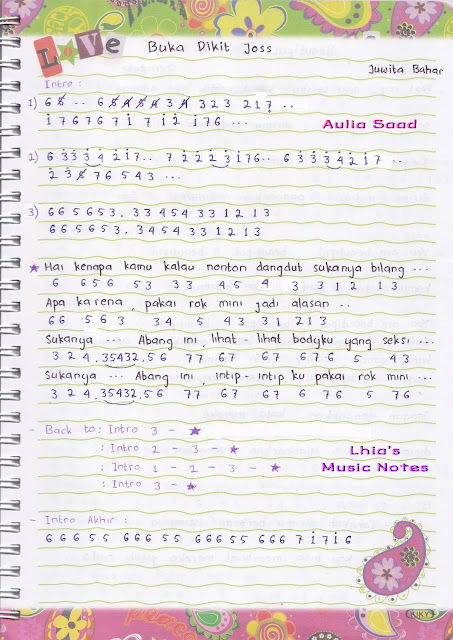 LOVE
Buka Dikit Joss
Juwita Bahar
Intro :
1) 6 5̸ .. 6 5̸ 5̸ 5̸ 4̸ 3 4̸ 3 2 3 2 1 7 ..
i̇ 7 6 7 6 7 i̇ 7 i̇ 2̇ i̇ 7 6 ...
Aulia Saad
2) 6 3̇ 3̇ 3̇ 4̇ 2̇ i̇ 7 .. 7 2̇ 2̇ 2̇ 3̇ i̇ 7 6 .. 6 3̇ 3̇ 3̇ 4̇ 2̇ i̇ 7 ..
.. 2 3 5̸ 7 6 5 4 3 ...
3) 6 6 5 6 5 3 . 3 3 4 5 4 3 3 1 2 1 3
6 6 5 6 5 3 . 3 4 5 4 3 3 1 2 1 3
★ Hai kenapa kamu kalau nonton dangdut sukanya bilang ...
6 6 5 6 5 3 3 3 4 5 4 3 3 1 2 1 3
Apa karena, pakai rok mini jadi alasan ..
6 6 5 6 3 3 4 5 4 3 3 1 2 1 3
Sukanya ... Abang ini, lihat - lihat bodyku yang seksi ...
3 2 4 . 35432 . 5 6 7 7 6 7 6 7 6 7 6 5 4 3
Sukanya ... Abang ini, intip - intip ku pakai rok mini ...
3 2 4 . 35432 . 5 6 7 7 6 7 6 7 6 7 6 5 7 6
- Back to : Intro 3 - ★
: Intro 2 - 3 - ★
: Intro 1 - 2 - 3 - ★
: Intro 3 - ★
Lhia's
Music Notes
- Intro Akhir :
6 6 6 5 5 6 6 6 5 5 6 6 6 5 5 6 6 6 7 i̇ 7 i̇ 6
KIKY